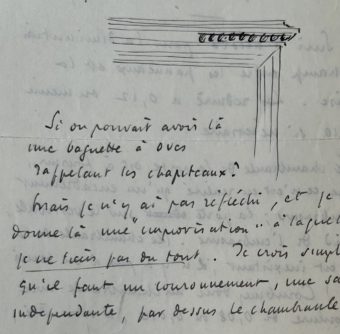 Si on pouvait avoir là
une baguette à oves
rappelant les chapiteaux ?
Mais je n'y ai pas réfléchi, et je
donne là une "improvisation" à laquel
je ne tiens pas du tout. Je crois simpl
qu'il faut un couronnement, une sa
indépendante, par dessus le chambranle